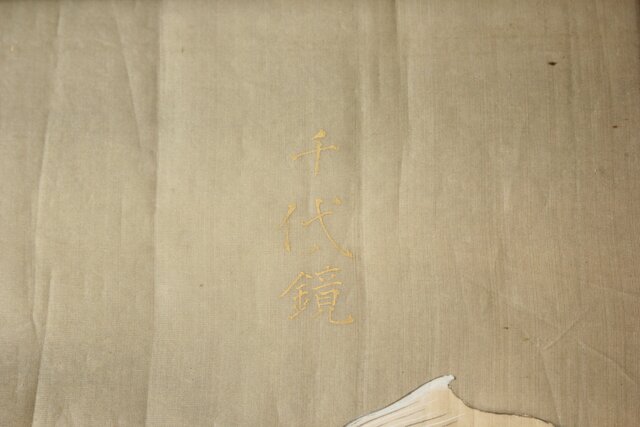 千代鏡